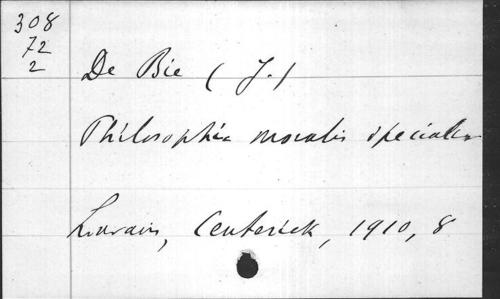 308
72
2
De Bie (J.)
Philosophia moralis specialis
Louvain, Ceuterick, 1910, 8